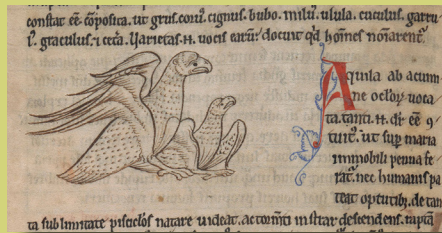 constat eē cōposita. ut grus. coruꝰ. cignus. bubo. miluꝰ. ulula. cuculus. garru
lꝰ. graculus. ⁊ cetͣ. Uarietas .n. uocis earū docuit qd hoīnes noīarent.
Aquila ab acum
ne oculoꝝ uoca
ta. tanti .n. dr̄ eē
ut suꝑ maria
immobili penna fe
rat̄. nec humanis pa
teat optutibꝫ. de tan
ta sublimitate pisciclos natare uideat. ac tormti instar descendens. raptā